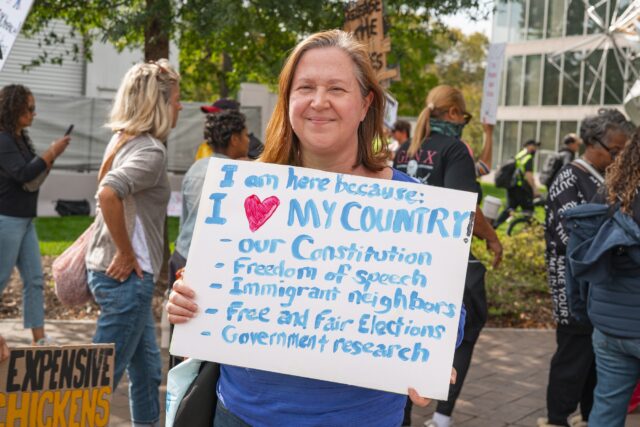 I am here because:
I ❤ MY COUNTRY!
- our Constitution
- Freedom of speech
- Immigrant neighbors
- Free and Fair Elections
- Government research
EXPENSIVE
CHICKENS